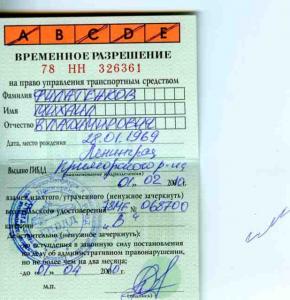 A B C D E
ВРЕМЕННОЕ РАЗРЕШЕНИЕ
78 НН 326361
на право управления транспортным средством
Фамилия ФИЛАТЕНКОВ
Имя МИХАИЛ
Отчество ВЛАДИМИРОВИЧ
Дата, место рождения 28.01.1969
Ленинград
Выдано ГИБДД Приморского р-на
(наименование района)
01 02 20
взамен изъятого, утраченного (ненужное зачеркнуть)
водительского удостоверения 068700
категории "В"
действительно (ненужное зачеркнуть):
до вступления в законную силу постановления
по делу об административном правонарушении,
но не более чем на два месяца;
до 01 04 20
М.П.